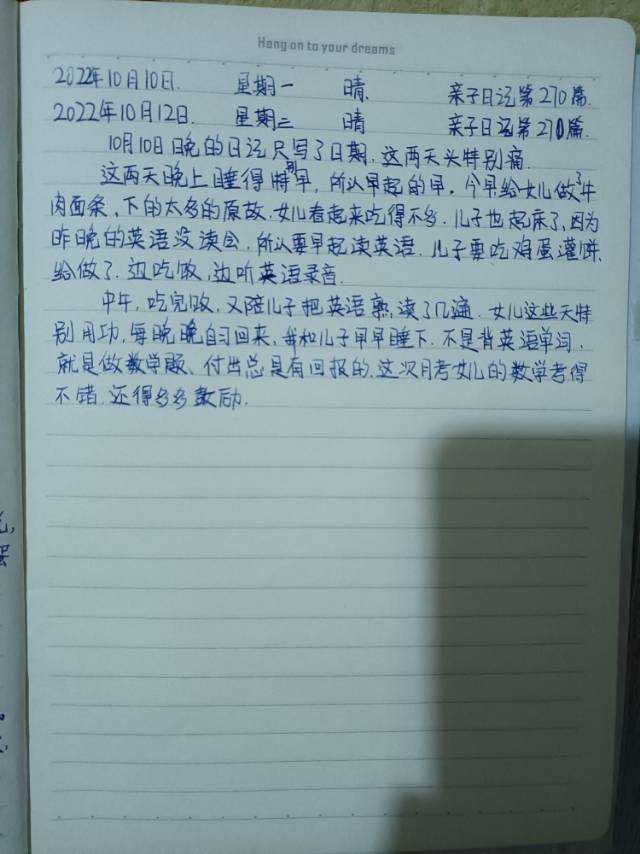 Hang on to your dreams
2022年10月10日. 星期一 晴. 亲子日记第270篇.
2022年10月12日. 星期三 晴 亲子日记第271篇.
10月10日晚的日记只写了日期, 这两天头特别痛.
这两天晚上睡得特别早, 所以早起的早. 今早给女儿做了牛
肉面条, 下的太多的原故. 女儿看起来吃得不多. 儿子也起床了, 因为
昨晚的英语没读会, 所以要早起读英语. 儿子要吃鸡蛋灌饼,
给做了. 边吃饭, 边听英语录音.
中午, 吃完饭, 又陪儿子把英语熟, 读了几遍. 女儿这些天特
别用功, 每晚晚自习回来, 我和儿子早早睡下. 不是背英语单词,
就是做数学题、付出总是有回报的. 这次月考女儿的数学考得
不错. 还得多多鼓励.